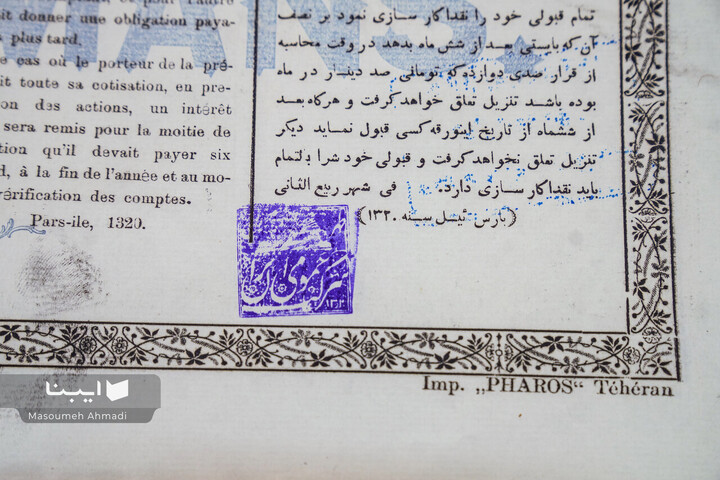 MANS.
et pour l'autre
it donner une obligation paya-
plus tard.
cas où le porteur de la pré-
it toute sa cotisation, en pre-
on des actions, un intérêt
sera remis pour la moitie de
tion qu'il devait payer six
d, à la fin de l'année et au mo-
vérification des comptes.
Pars-ile, 1320.
تمام قبولی خود را نقداکار سازی نمود بر نصف
آن که بایستی بعد از شش ماه بدهد در وقت محاسبه
از قرار صدی دوازده که تومانی صد دینار در ماه
بوده باشد تنزیل تعلق خواهد گرفت و هرگاه بعد
از ششماه از تاریخ اینورقه کسی قبول نماید دیگر
تنزیل تعلق نخواهد گرفت و قبولی خود شرا بالتمام
باید نقداکار سازی دارد. فی شهر ربیع الثانی
(پارس ئیل سنه ۱۳۲۰)
شرکت عمومی ایران
Imp. „PHAROS“ Téhéran
ایبنا
Masoumeh Ahmadi